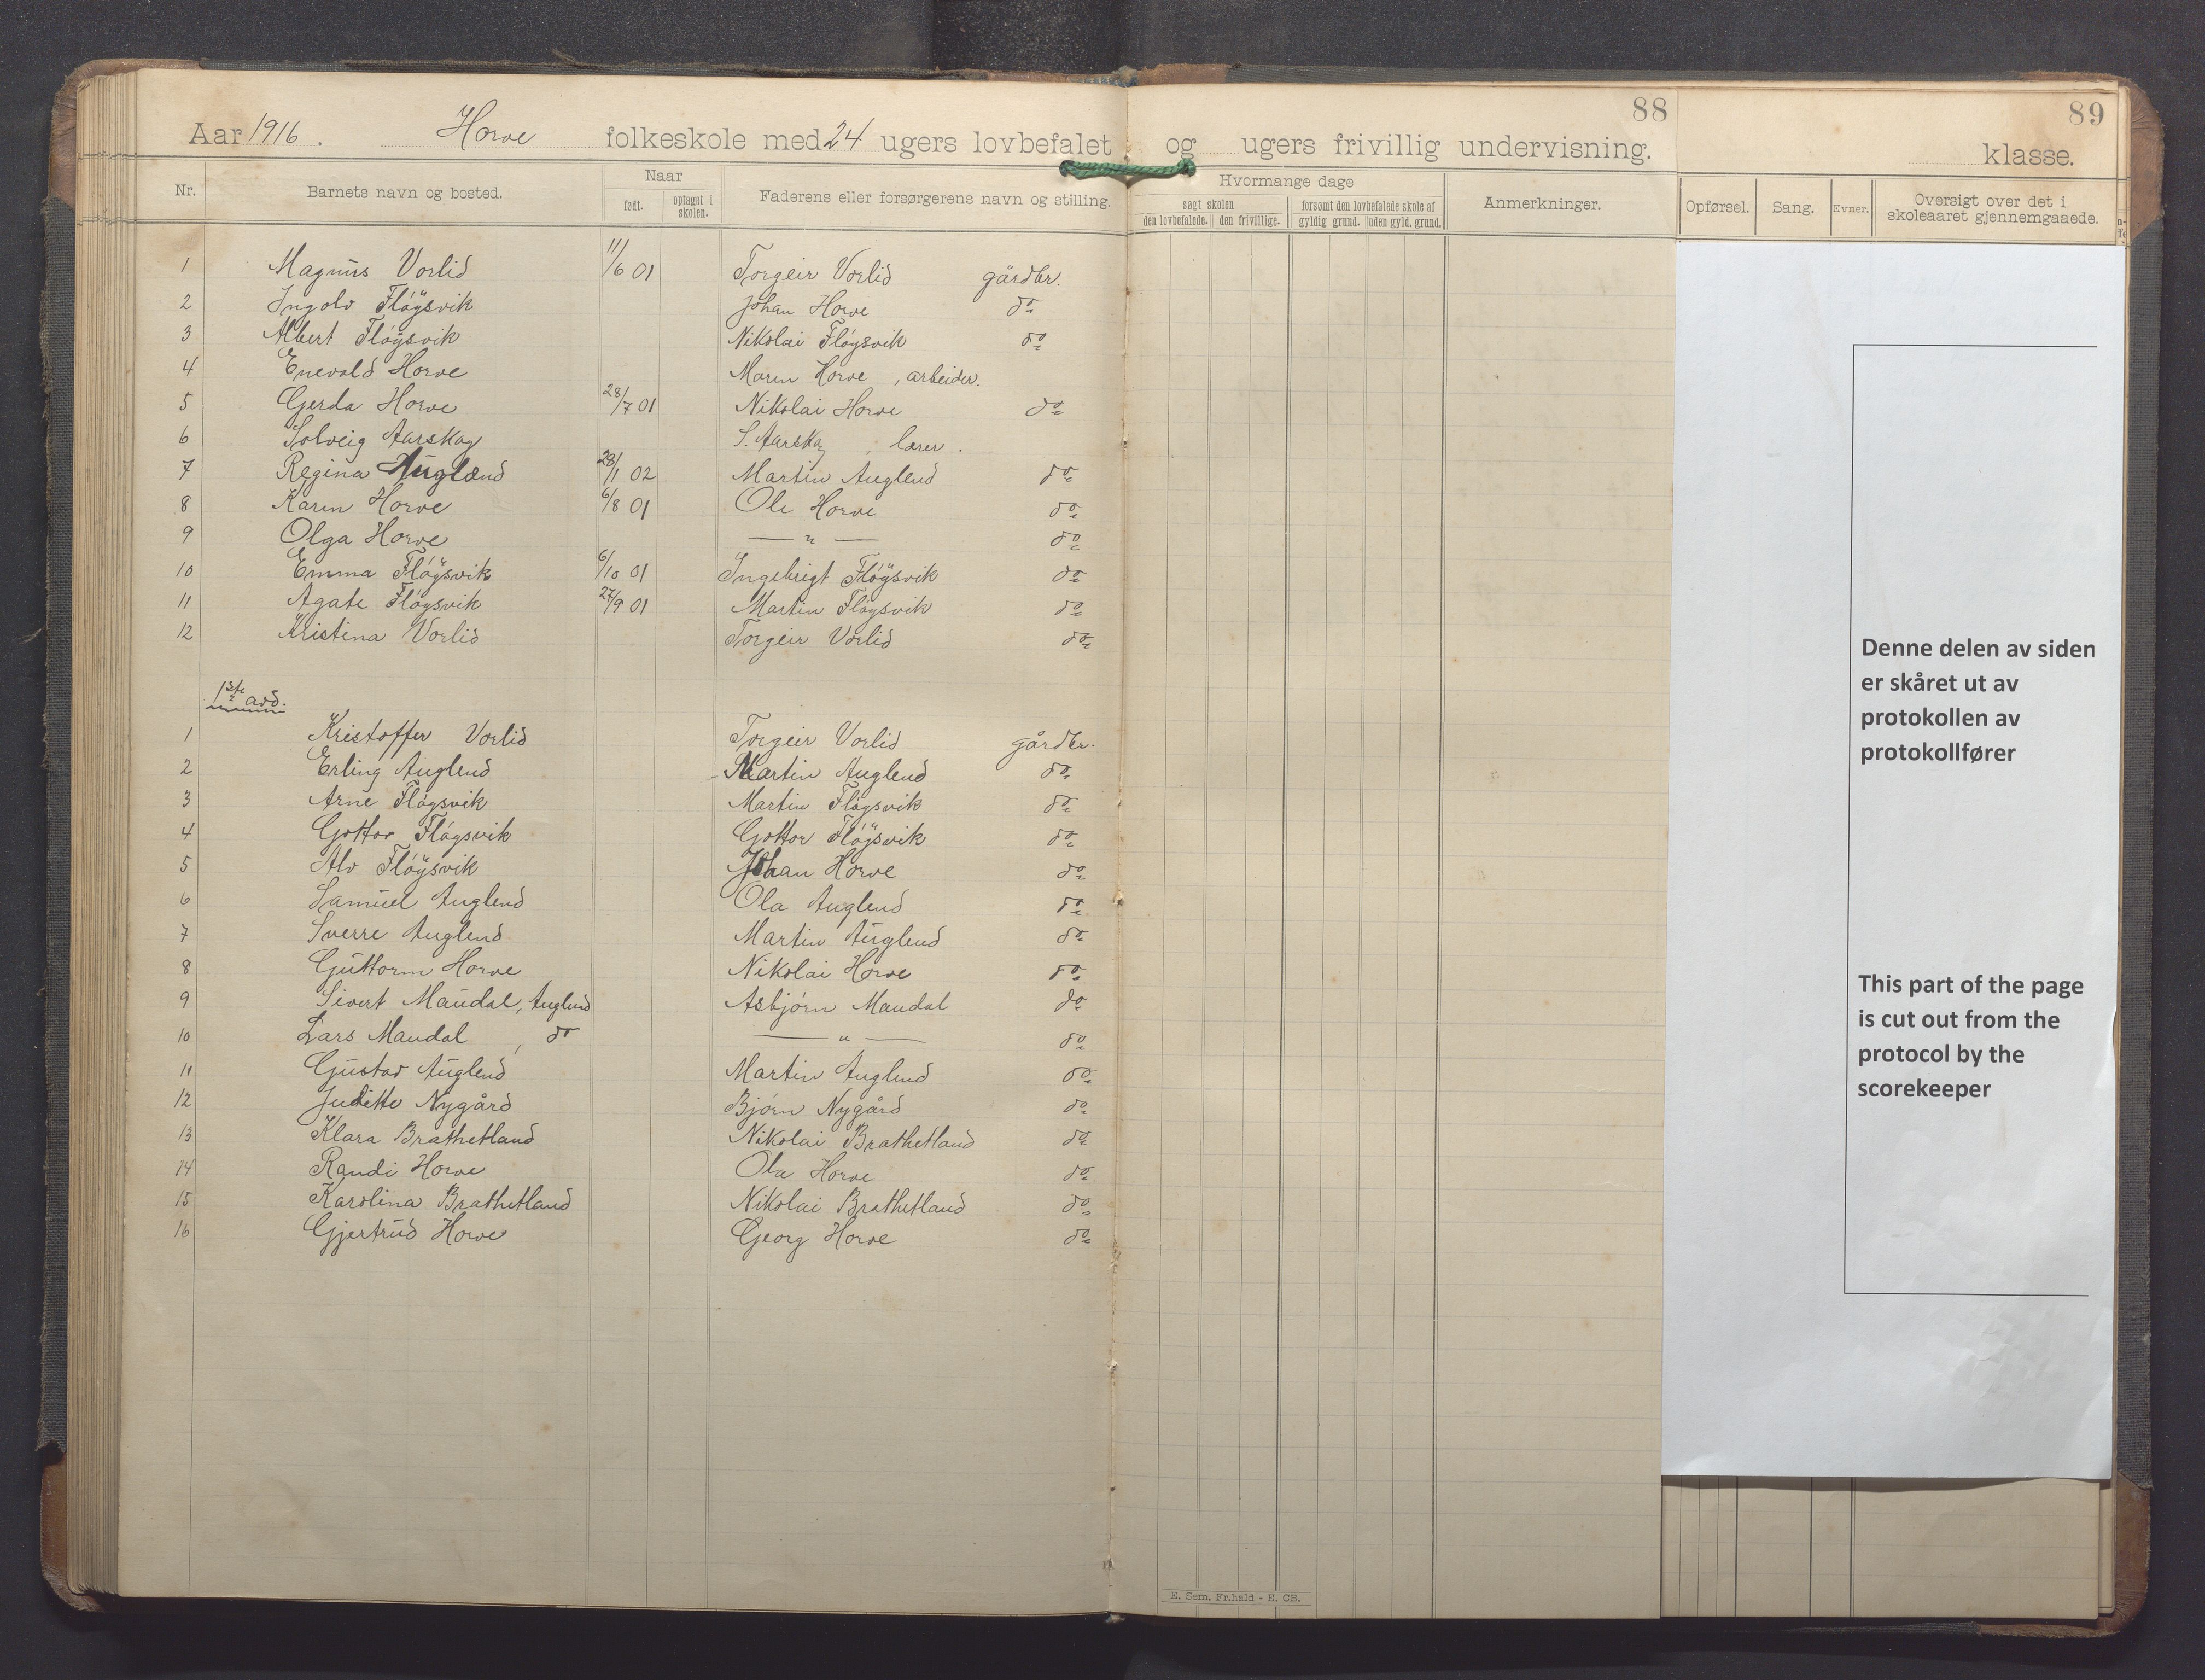 Aar 1916. Horve folkeskole med 24 ugers lovbefalet og ugers frivillig undervisning. 88
89
klasse.
Nr. Barnets navn og bosted. Naar født. optaget i skolen. Faderens eller forsørgerens navn og stilling. Hvormange dage søgt skolen den lovbefalede. den frivillige. forsømt den lovbefalede skole af gyldig grund. uden gyld. grund. Anmerkninger. Opførsel. Sang. Evner. Oversigt over det i skoleaaret gjennemgaaede.
1 Magnus Vorlid 11/6 01 Torgeir Vorlid gårdbr.
2 Ingolv Fløysvik Johan Horve do
3 Albert Fløysvik Nikolai Fløysvik do
4 Enevald Horve Maren Horve, arbeider.
5 Gerda Horve 28/7 01 Nikolai Horve do
6 Solveig Aarskog S. Aarskog, lærer.
7 Regina Auglend 28/1 02 Martin Auglend do
8 Karen Horve 6/8 01 Ole Horve do
9 Olga Horve — " — do
10 Emma Fløysvik 6/10 01 Ingebrigt Fløysvik do
11 Agate Fløysvik 27/9 01 Martin Fløysvik do
12 Kristina Vorlid Torgeir Vorlid do
1ste avd.
1 Kristoffer Vorlid Torgeir Vorlid gårdbr.
2 Erling Auglend Martin Auglend do
3 Arne Fløysvik Martin Fløysvik do
4 Gottor Fløysvik Gottor Fløysvik do
5 Alv Fløysvik Johan Horve do
6 Samuel Auglend Ola Auglend do
7 Sverre Auglend Martin Auglend do
8 Guttorm Horve Nikolai Horve do
9 Sivert Maudal, Auglend Asbjørn Maudal do
10 Lars Maudal, do — " — do
11 Gustav Auglend Martin Auglend do
12 Juditte Nygård Bjørn Nygård do
13 Klara Brathetland Nikolai Brathetland do
14 Randi Horve Ola Horve do
15 Karolina Brathetland Nikolai Brathetland do
16 Gjertrud Horve Georg Horve do
Denne delen av siden
er skåret ut av
protokollen av
protokollfører
This part of the page
is cut out from the
protocol by the
scorekeeper
E. Sem, Fr.hald - E. CB.